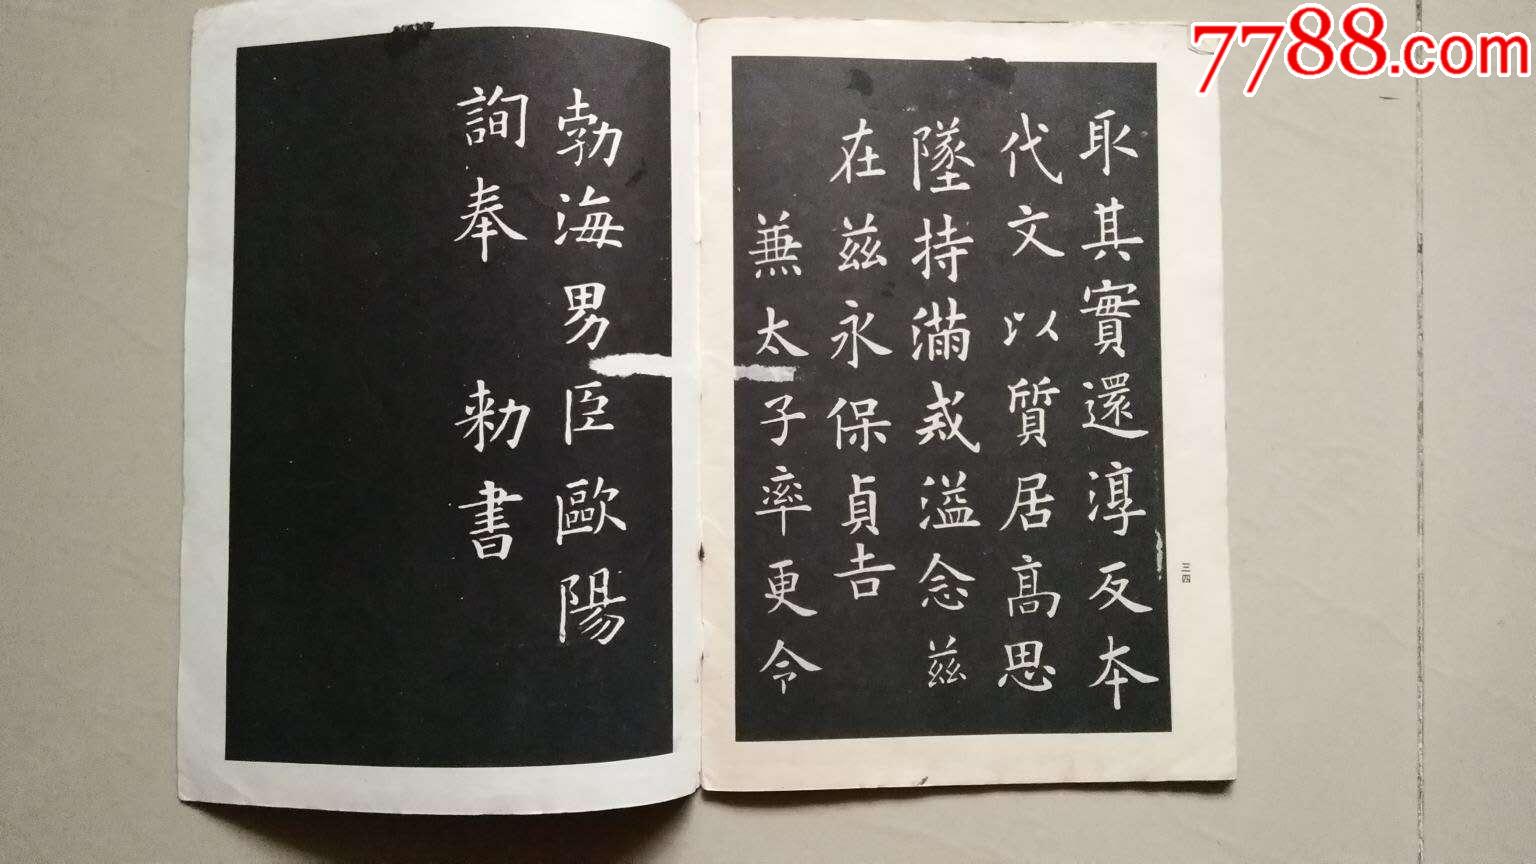 7788.com
取其實還淳反本
代文以質居高思
墜持滿戒溢念兹
在兹永保貞吉
兼太子率更令
三四
勃海男臣歐陽
詢奉 勑書